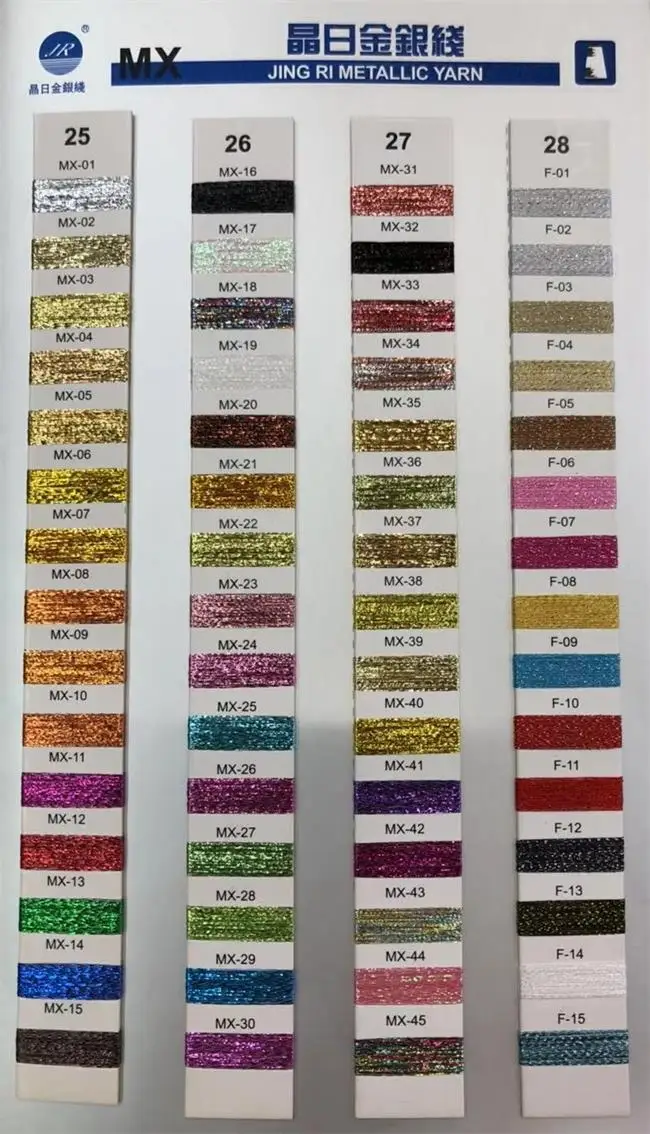 JR
®
晶日金銀綫
MX
晶日金銀綫
JING RI METALLIC YARN
25
MX-01
MX-02
MX-03
MX-04
MX-05
MX-06
MX-07
MX-08
MX-09
MX-10
MX-11
MX-12
MX-13
MX-14
MX-15
26
MX-16
MX-17
MX-18
MX-19
MX-20
MX-21
MX-22
MX-23
MX-24
MX-25
MX-26
MX-27
MX-28
MX-29
MX-30
27
MX-31
MX-32
MX-33
MX-34
MX-35
MX-36
MX-37
MX-38
MX-39
MX-40
MX-41
MX-42
MX-43
MX-44
MX-45
28
F-01
F-02
F-03
F-04
F-05
F-06
F-07
F-08
F-09
F-10
F-11
F-12
F-13
F-14
F-15